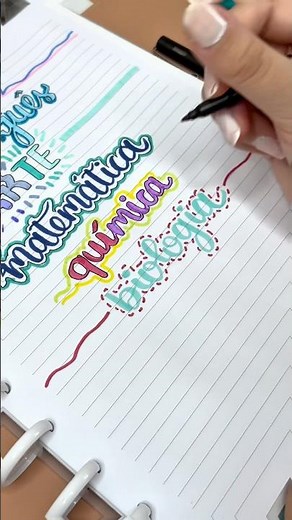 ARTE
matemática
química
biologia